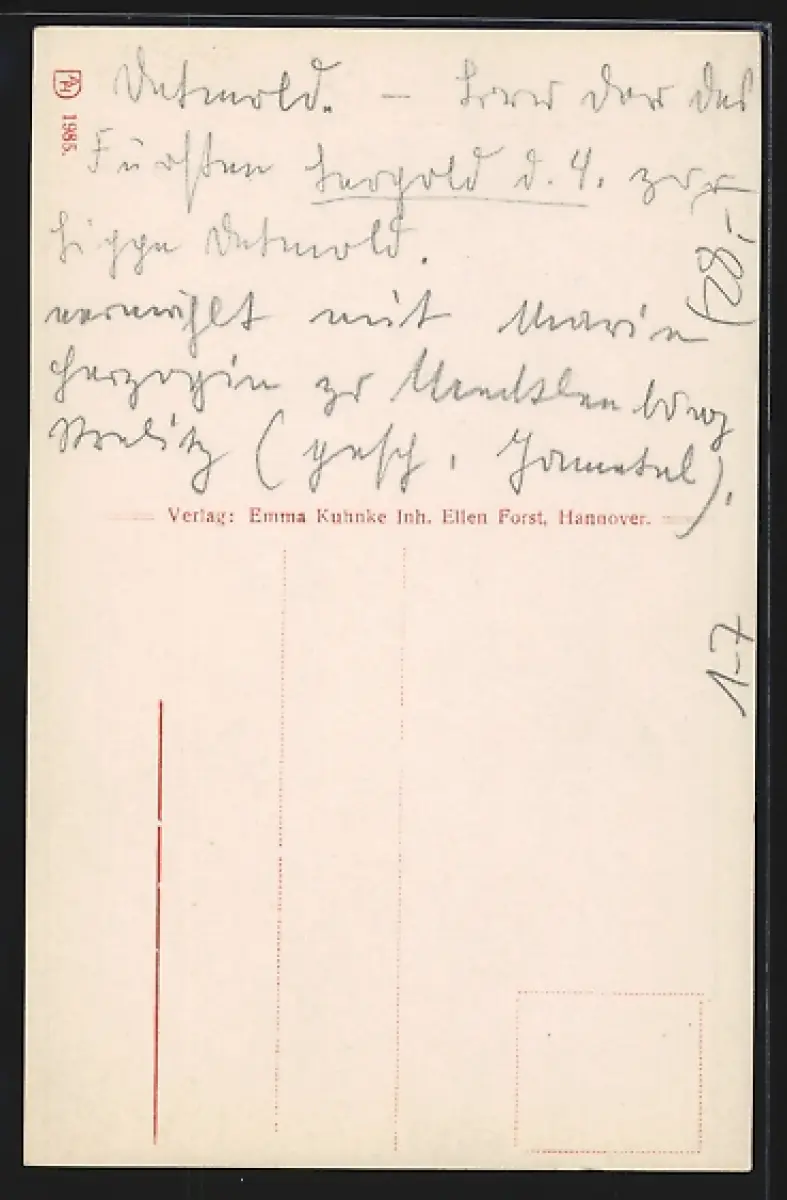 Detmold. – Bruder des
Fürsten Leopold d. 4. zur
Lippe Detmold.
vermählt mit Marie
Herzogin zu Mecklenburg
Strelitz (gesch. Jametel).
1985.
28,-
Verlag: Emma Kuhnke Inh. Ellen Forst, Hannover.
1-7